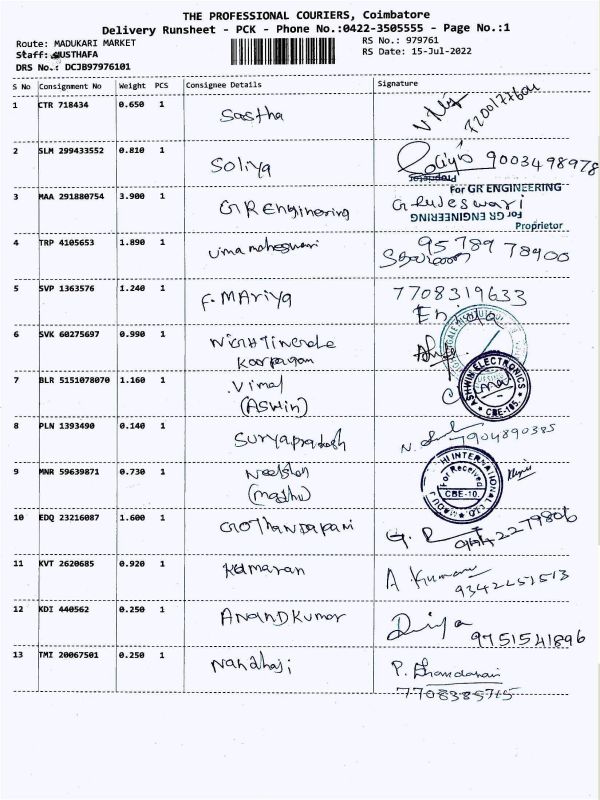 THE PROFESSIONAL COURIERS, Coimbatore
Delivery Runsheet - PCK - Phone No.:0422-3505555 - Page No.:1
Route: MADUKARI MARKET RS No.: 979761
Staff: MUSTHAFA RS Date: 15-Jul-2022
DRS No.: DCJB97976101
S No Consignment No Weight PCS Consignee Details Signature
1 CTR 718434 0.650 1 Sastha
2 SLM 299433552 0.810 1 Soliya 9003498978
Proprietor
For GR ENGINEERING
3 MAA 291880754 3.900 1 GR Engineering
For GR ENGINEERING
Proprietor
4 TRP 4105653 1.890 1 Uma maheswari 95789 78900
5 SVP 1363576 1.240 1 F. MAriya 7708319633
6 SVK 60275697 0.990 1
7 BLR 5151078070 1.160 1 Vimal
(ASwin)
ASHWIN ELECTRONICS
CBE-105.
8 PLN 1393490 0.140 1 Suryaprakash 7904890385
9 MNR 59639871 0.730 1
(madhu)
INTERNATIONAL
For Received
CBE-10.
10 EDQ 23216087 1.600 1 GOThANDAPANi
11 KVT 2620685 0.920 1 Kumaran A Kumaran
12 KDI 440562 0.250 1 ANANDKUMAR Diviya
9751541896
13 TMI 20067501 0.250 1 Nandhaji
7708385715